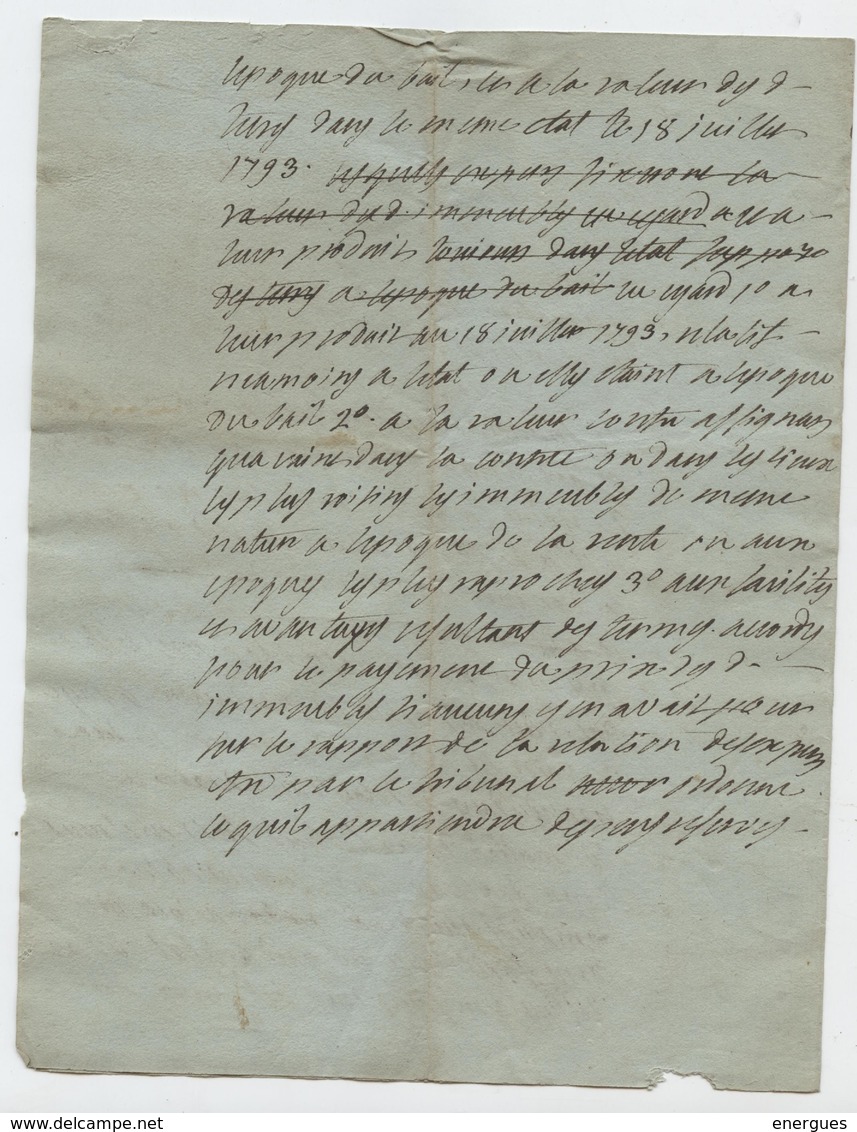 lepoque du bail, et a la valeur desd -
terres dans le meme etat le 18 juillet
1793. lesquels experts fixeront la
valeur desd immeubles eu egard a
leur produit dans letat
des terres a lepoque du bail eu egard 1o a
leur produit au 18 juillet 1793, relatif -
neamoins a letat ou elles etaint a lepoque
du bail 2o. a la valeur contre assignats
quavaint dans la contree ou dans les lieux
les plus voisins les immeubles de meme
nature a lepoque de la vente ou aux
epoques les plus raprochees 3o aux facilites
et avantages resultans des termes accordes
pour le payement du prix desd -
immeubles si aucuns y en avait pour
sur le rapport de la relation des experts
etre par le tribunal ordonne
ce quil appartiendra depens reserves -
delcampe.net
energues